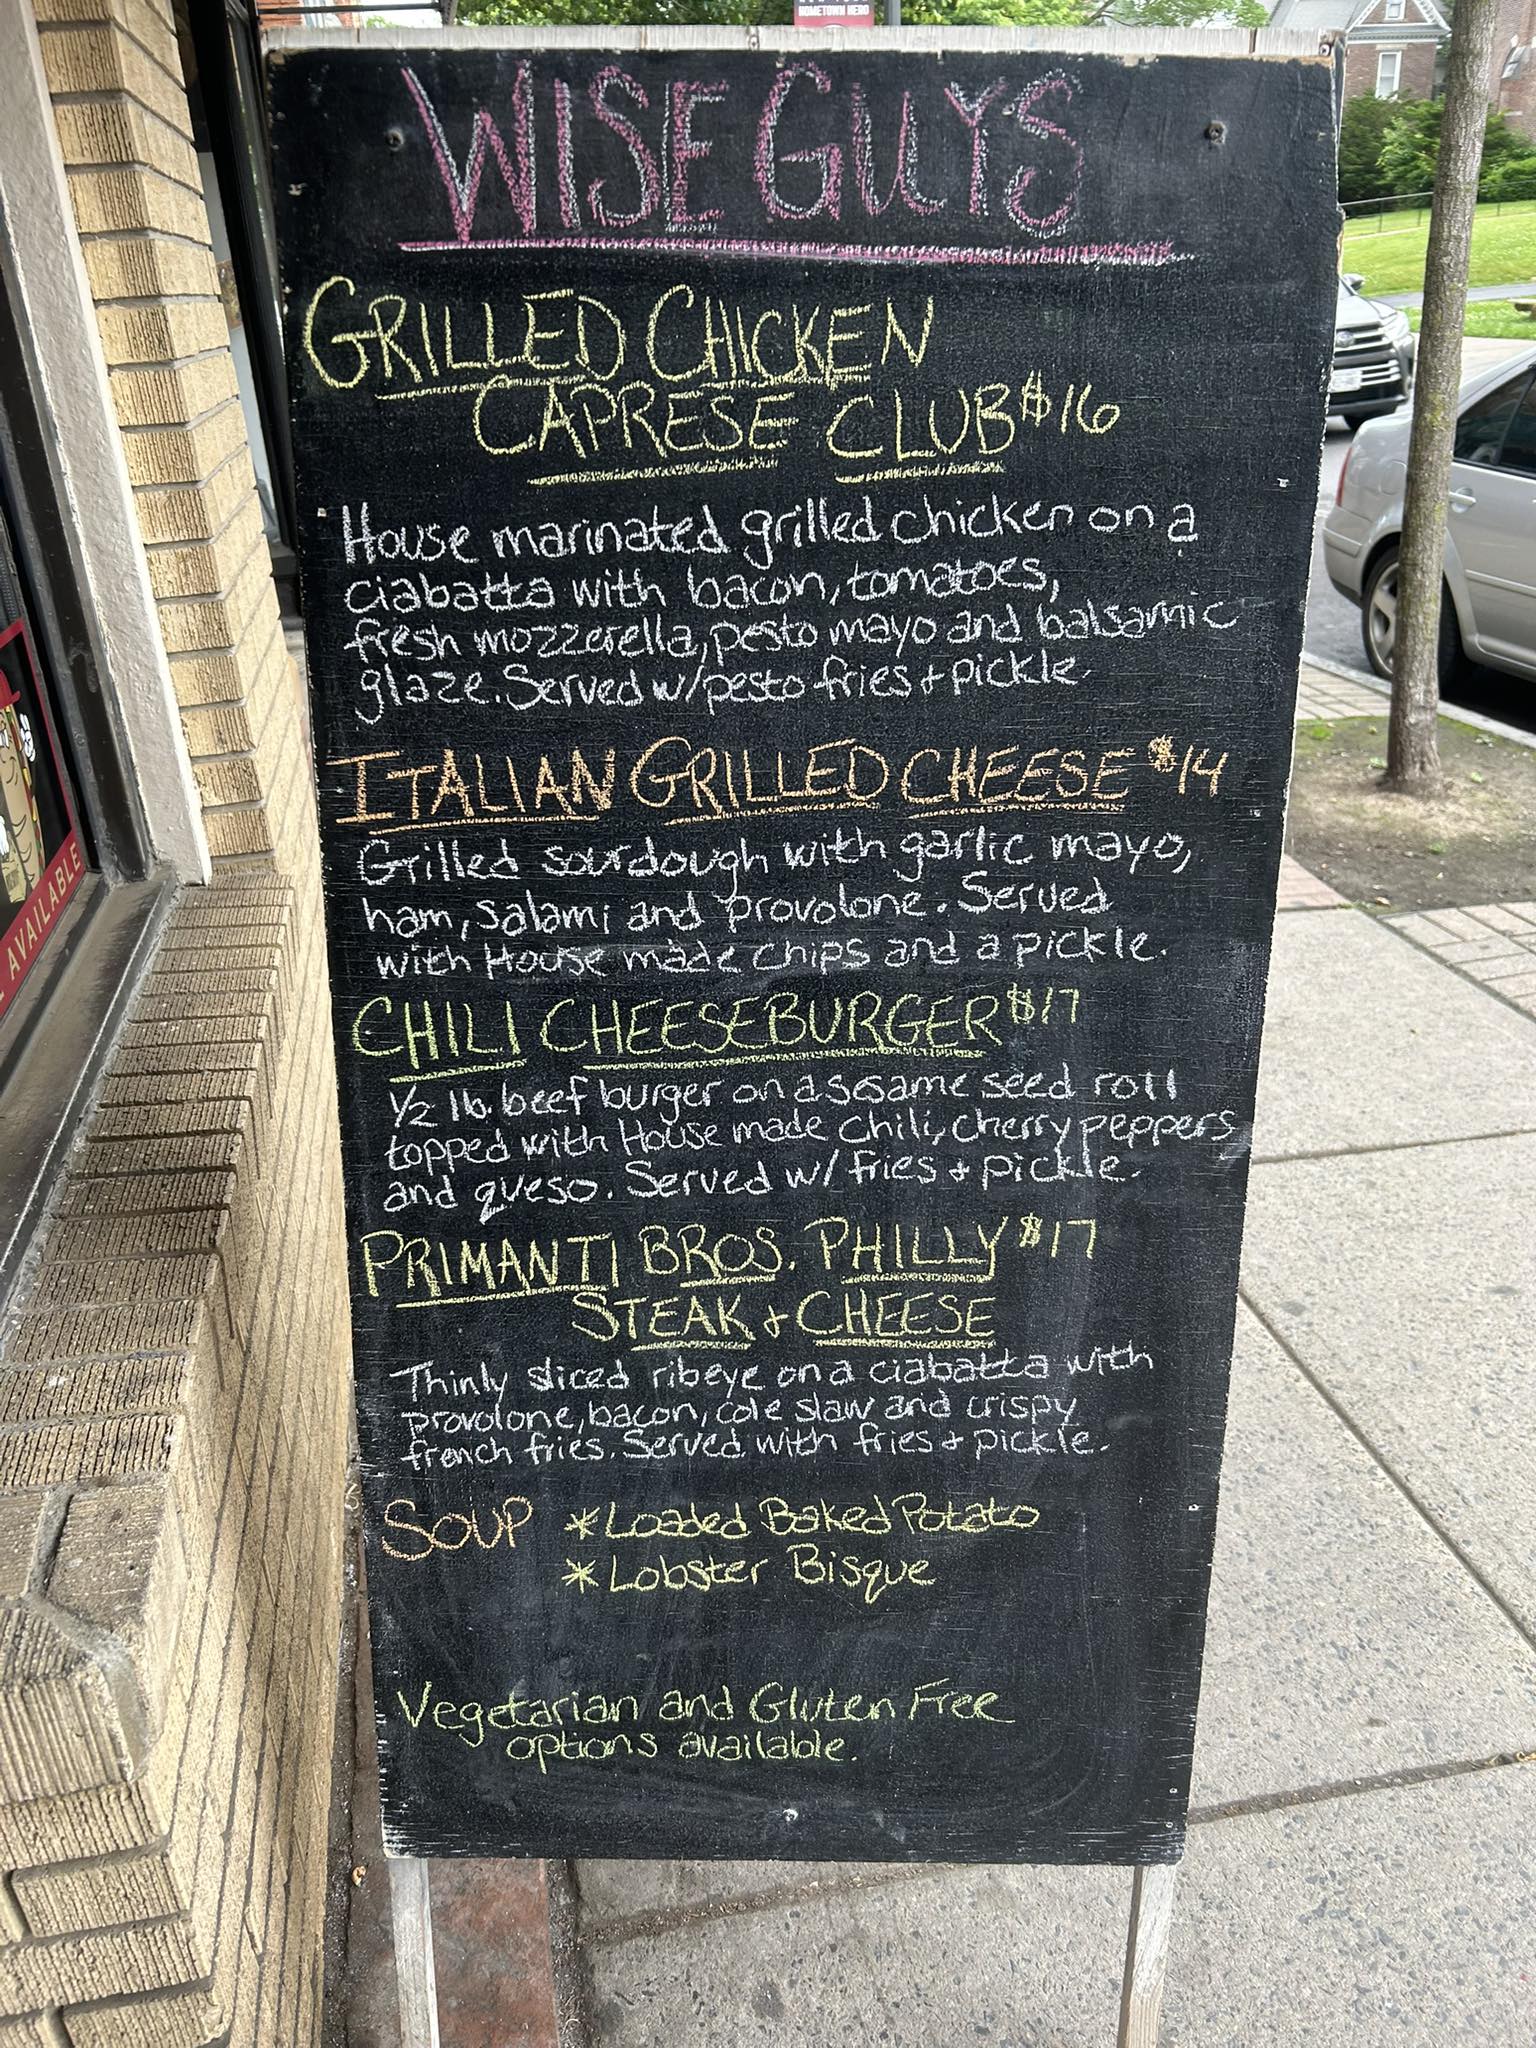 HOMETOWN HERO
WISE GUYS
GRILLED CHICKEN
CAPRESE CLUB $16
House marinated grilled chicken on a
ciabatta with bacon, tomatoes,
fresh mozzerella, pesto mayo and balsamic
glaze. Served w/pesto fries + pickle.
ITALIAN GRILLED CHEESE $14
Grilled sourdough with garlic mayo,
ham, salami and provolone. Served
with House made chips and a pickle.
CHILI CHEESEBURGER $17
1/2 lb. beef burger on a sesame seed roll
topped with House made chili, cherry peppers
and queso. Served w/ fries + pickle.
PRIMANTI BROS. PHILLY $17
STEAK + CHEESE
Thinly sliced ribeye on a ciabatta with
provolone, bacon, cole slaw and crispy
french fries. Served with fries + pickle.
SOUP * Loaded Baked Potato
* Lobster Bisque
Vegetarian and Gluten Free
options available.
AVAILABLE